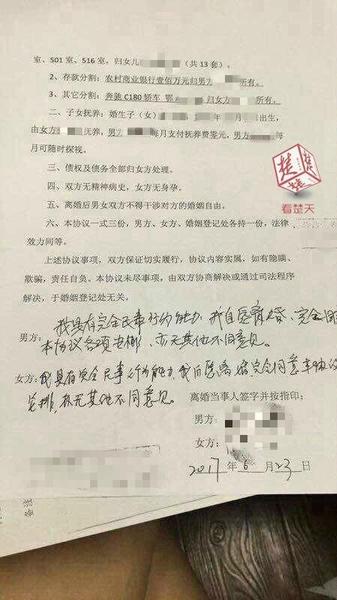 室、501室、516室，归女儿 （共13套）。
2、存款分割：农村商业银行壹佰万元归男方 所有。
3、其它分割：奔驰C180轿车 鄂 归女方 所有。
二、子女抚养：婚生子（女） 出生，
由女方 抚养，男方 每月支付抚养费 元，男方 每
月可随时探视。
三、债权及债务全部归女方处理。
四、双方无精神病史，女方无身孕。
五、离婚后男女双方不得干涉对方的婚姻自由。
六、本协议一式三份，男方、女方、婚姻登记处各持一份，法律
效力同等。
上述协议事项，双方保证切实履行，协议内容实属，如有隐瞒、
欺骗，责任自负。本协议未尽事项，由双方协商解决或通过司法程序
解决，于婚姻登记处无关。
男方：我具有完全民事行为能力，我自愿离婚、完全同
本协议各项安排，亦无其他不同意见。
女方：我具有完全民事行为能力，我自愿离婚完全同意本协议
安排，亦无其他不同意见。
离婚当事人签字并按指印：
男方：
女方：
2017年6月23日
看楚天
备注